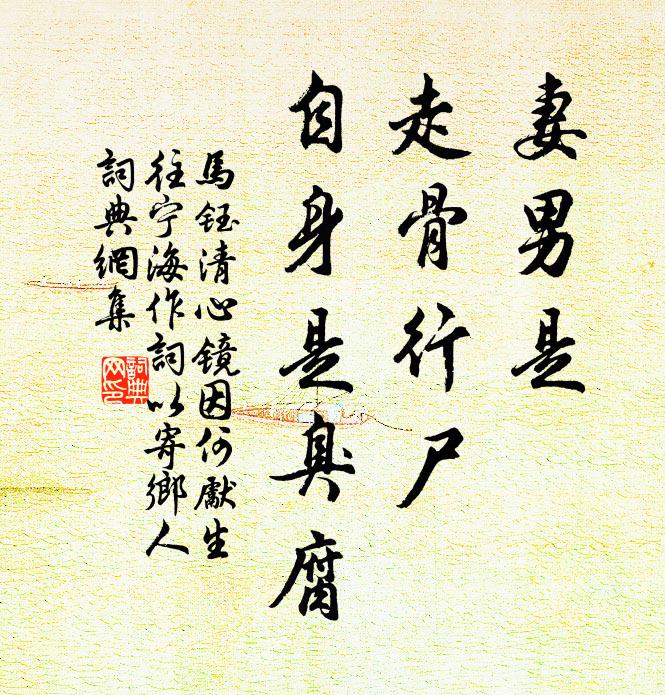 妻男是
走骨行尸
自身是臭腐
馬鈺清心鏡因何獻生
往宁海作詞以寄鄉人
詞典網集
詞典网印